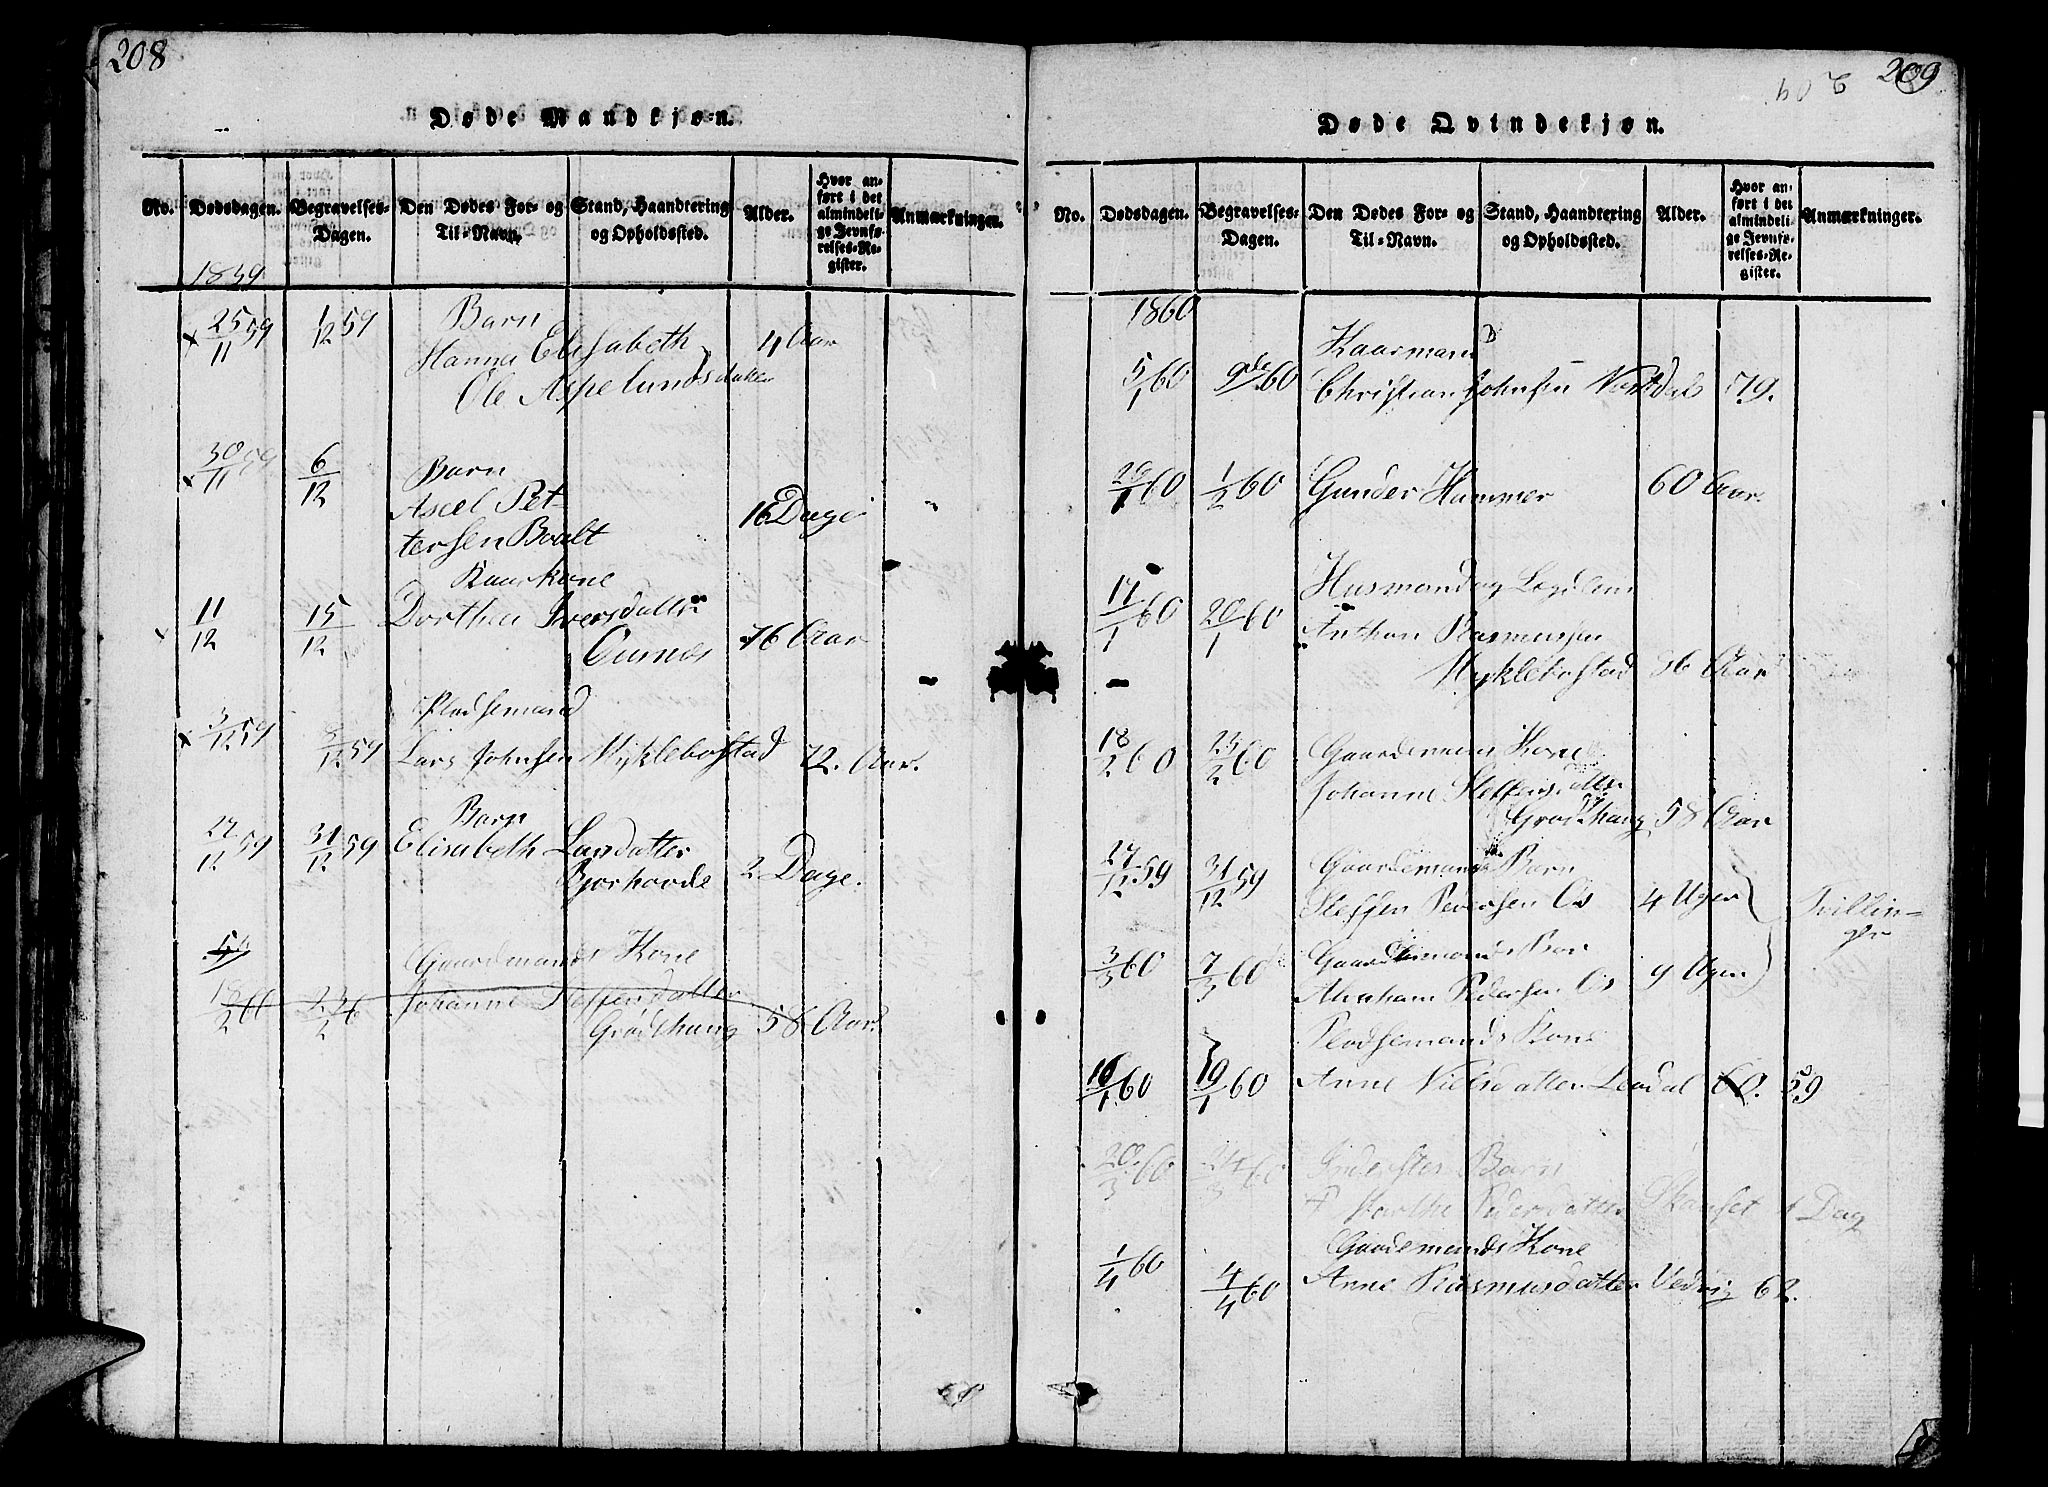 208
Døde Mandkjøn.
No. Dødsdagen. Begravelses-Dagen. Den Dødes For- og Til-Navn. Stand, Haandtering og Opholdssted. Alder. Hvor anført i det almindelige Jevnførelses-Register. Anmærkninger.
1859
Barn
x 25/11 59 1/12 59 Hanna Elisabeth 4 Aar
Ole Aspelunds
x 30/11 59 6/12 Barn
Axel Pet-
tersen Bralt 16 Dage
Kaarkone
11/12 15/12 Dorthea Iversdatter
Ournes 76 Aar
Pladsemand
x 3/12 59 9/12 59 Lars Johnsen Myklebostad 72. Aar.
Barn
27/12 59 31/12 59 Elisabeth Larsdatter
Bjørhovde 2 Dage.
Gaardemands Kone
18/2 60 23/2 6 Johanne Steffensdatter
Grødthaug 58 Aar
209
Døde Qvindekjøn.
No. Dødsdagen. Begravelses-Dagen. Den Dødes For- og Til-Navn. Stand, Haandtering og Opholdssted. Alder. Hvor anført i det almindelige Jevnførelses-Register. Anmærkninger.
1860
Kaarmand
5/1 60 9de/60 Christian Johnsen 79.
26/1 60 1/2 60 Gunder Hammer 60 Aar.
Husmand og Lægdlem
17/1 60 20/1 60 Anthon Rasmussen
Myklebostad 86 Aar
18/2 60 23/2 60 Gaardemans Kone
Johanne Steffensdatter
Grødthaug 58 Aar
27/12 59 31/12 59 Gaardemands Barn
Steffen Pedersen Os 4 Uger Tvillin-
ger
3/3 60 7/3 60 Gaardemands Bar
Abraham Pedersen Os 9 Uger
Pladsemands Kone
16/1 60 19/1 60 Anne Nielsdatter Leirdal 60. 59
20/3 60 24/3 60 Inderster Barn
Marthe Pedersdatter Skanset 1 Dag
Gaardemands Kone
1/4 60 4/4 60 Anne Rasmusdatter Vedvig 62.